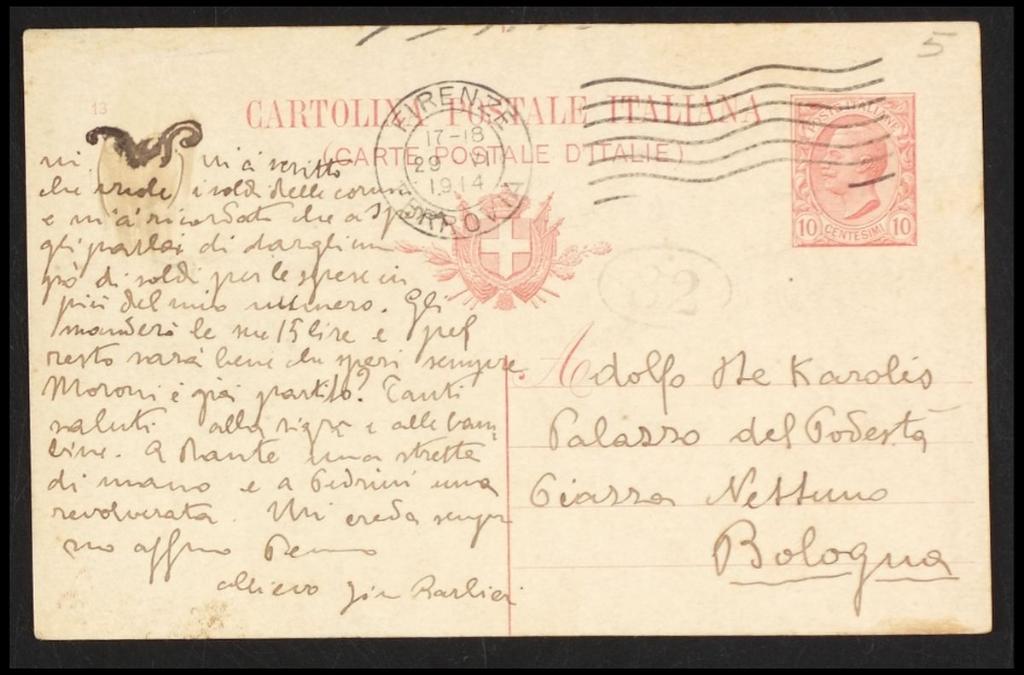 5
13
CARTOLINA POSTALE ITALIANA
(CARTE POSTALE D'ITALIE)
FIRENZE
17-18
29 VI
1914
FERROVIA
POSTE ITALIANE
10 CENTESIMI 10
22
mi à scritto
che vuole i soldi delle
e m'à ricordato che a
gli parlai di dargli un
pò di soldi per le spese in
più del mio numero. Gli
manderò le sue 15 lire e pel
resto sarà bene che speri sempre
Moroni è già partito? Tanti
saluti alla sigra e alle bam
bine. A Dante una stretta
di mano e a Pedrini una
revolverata. Mi creda sempre
suo affmo
allievo Gino Barbieri
Adolfo De Karolis
Palazzo del Podestà
Piazza Nettuno
Bologna